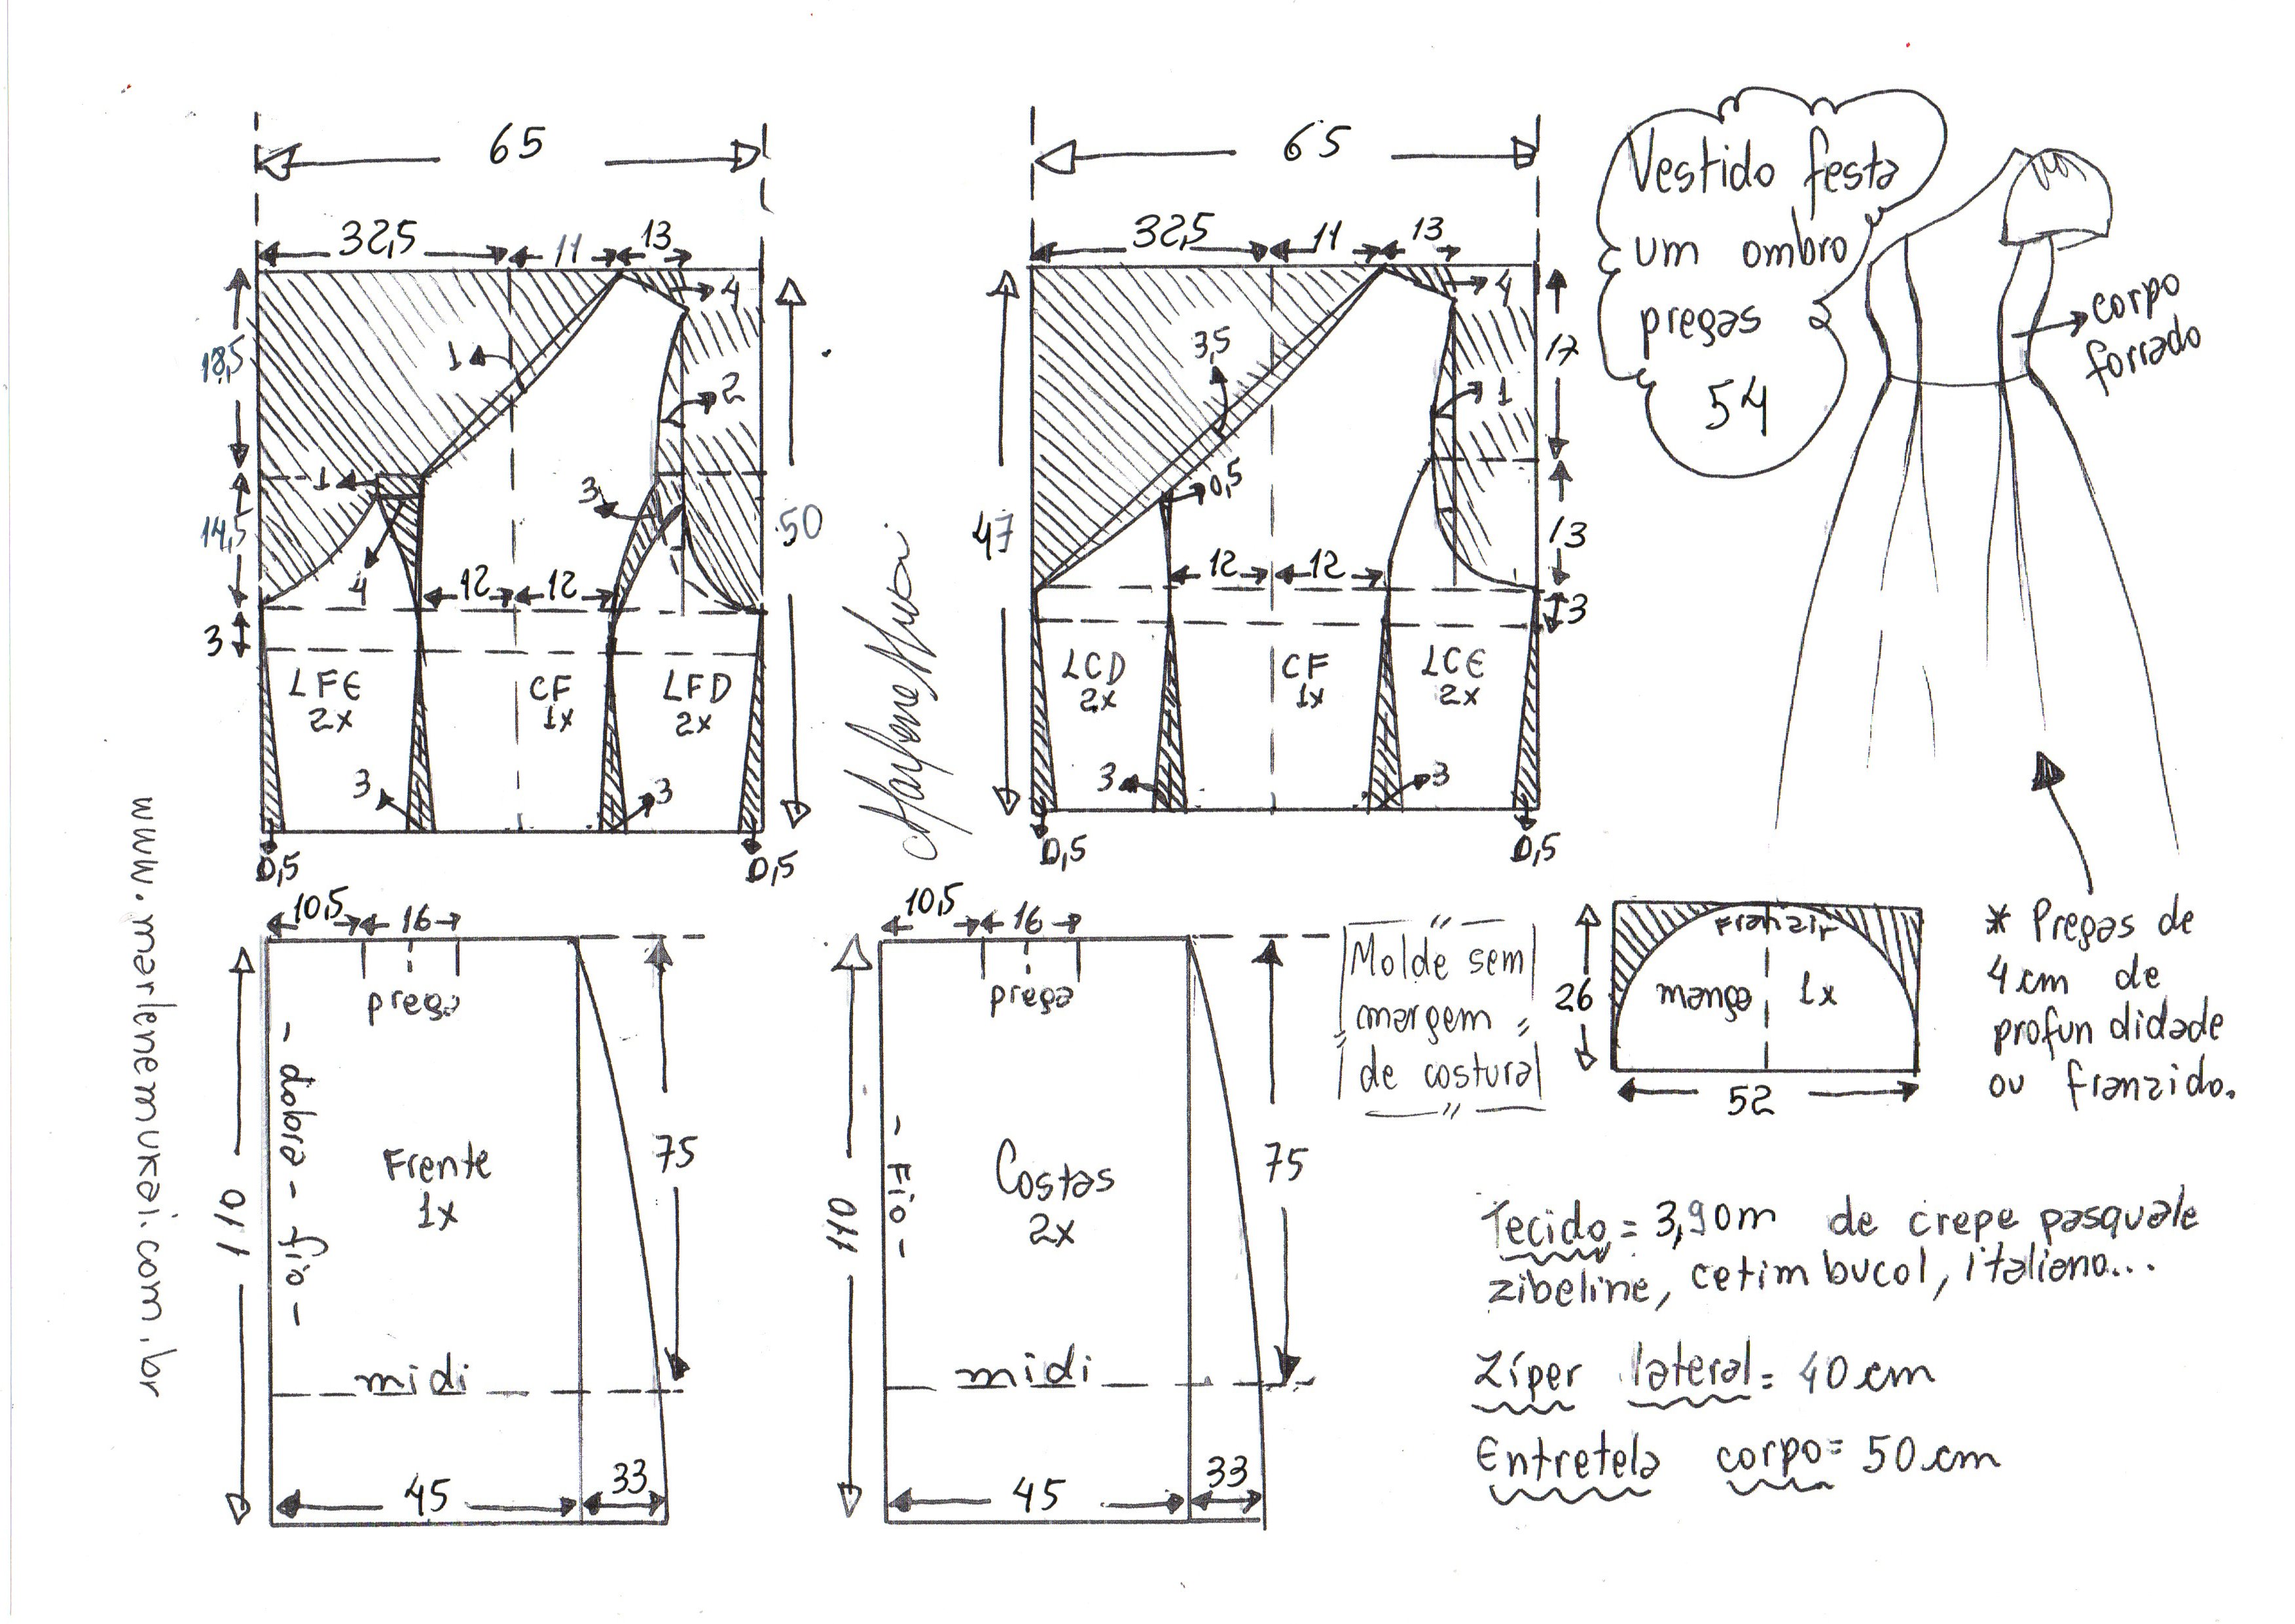 65
32,5
11
13
4
18,5
1
2
1
3
14,5
50
4
12
12
3
LFE
2x
CF
1x
LFD
2x
3
3
0,5
0,5
65
32,5
11
13
4
17
3,5
1
0,5
47
13
12
12
3
LCD
2x
CF
1x
LCE
2x
3
3
0,5
0,5
Vestido festa
um ombro
pregas
54
corpo
forrado
www.marlenemukai.com.br
10,5
16
prega
- dobra - fio -
110
Frente
1x
75
midi
45
33
10,5
16
prega
- Fio -
110
Costas
2x
75
midi
45
33
Molde sem
margem
de costura
Franzir
26
manga 1x
52
* Pregas de
4 cm de
profundidade
ou franzido.
Tecido = 3,90m de crepe pasquale
zibeline, cetim bucol, italiano...
Zíper lateral = 40 cm
Entretela corpo = 50 cm